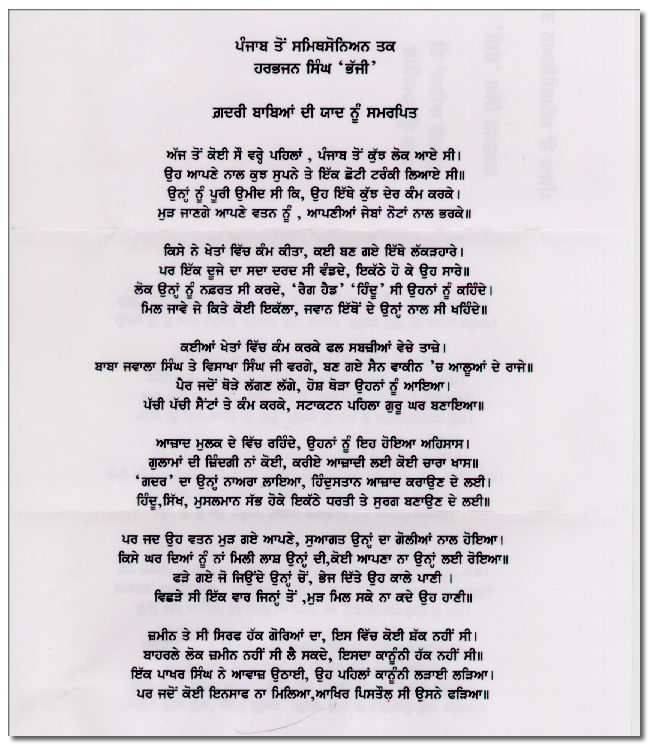 ਪੰਜਾਬ ਤੋਂ ਸਮਿਥਸੋਨਿਅਨ ਤਕ
ਹਰਭਜਨ ਸਿੰਘ ‘ਭੱਜੀ’
ਗ਼ਦਰੀ ਬਾਬਿਆਂ ਦੀ ਯਾਦ ਨੂੰ ਸਮਰਪਿਤ
ਅੱਜ ਤੋਂ ਕੋਈ ਸੌ ਵਰ੍ਹੇ ਪਹਿਲਾਂ , ਪੰਜਾਬ ਤੋਂ ਕੁੱਝ ਲੋਕ ਆਏ ਸੀ।
ਉਹ ਆਪਣੇ ਨਾਲ ਕੁਝ ਸੁਪਨੇ ਤੇ ਇੱਕ ਛੋਟੀ ਟਰੰਕੀ ਲਿਆਏ ਸੀ॥
ਉਨ੍ਹਾਂ ਨੂੰ ਪੂਰੀ ਉਮੀਦ ਸੀ ਕਿ, ਉਹ ਇੱਥੇ ਕੁੱਝ ਦੇਰ ਕੰਮ ਕਰਕੇ।
ਮੁੜ ਜਾਣਗੇ ਆਪਣੇ ਵਤਨ ਨੂੰ , ਆਪਣੀਆਂ ਜੇਬਾਂ ਨੋਟਾਂ ਨਾਲ ਭਰਕੇ॥
ਕਿਸੇ ਨੇ ਖੇਤਾਂ ਵਿੱਚ ਕੰਮ ਕੀਤਾ, ਕਈ ਬਣ ਗਏ ਇੱਥੇ ਲੱਕੜਹਾਰੇ।
ਪਰ ਇੱਕ ਦੂਜੇ ਦਾ ਸਦਾ ਦਰਦ ਸੀ ਵੰਡਦੇ, ਇਕੱਠੇ ਹੋ ਕੇ ਉਹ ਸਾਰੇ॥
ਲੋਕ ਉਨ੍ਹਾਂ ਨੂੰ ਨਫ਼ਰਤ ਸੀ ਕਰਦੇ, ‘ਰੈਗ ਹੈਡ’ ‘ਹਿੰਦੂ’ ਸੀ ਉਹਨਾਂ ਨੂੰ ਕਹਿੰਦੇ।
ਮਿਲ ਜਾਵੇ ਜੇ ਕਿਤੇ ਕੋਈ ਇਕੱਲਾ, ਜਵਾਨ ਇੱਥੋਂ ਦੇ ਉਨ੍ਹਾਂ ਨਾਲ ਸੀ ਖਹਿੰਦੇ॥
ਕਈਆਂ ਖੇਤਾਂ ਵਿੱਚ ਕੰਮ ਕਰਕੇ ਫਲ ਸਬਜ਼ੀਆਂ ਵੇਚੇ ਤਾਜ਼ੇ।
ਬਾਬਾ ਜਵਾਲਾ ਸਿੰਘ ਤੇ ਵਿਸਾਖਾ ਸਿੰਘ ਜੀ ਵਰਗੇ, ਬਣ ਗਏ ਸੈਨ ਵਾਕੀਨ ’ਚ ਆਲੂਆਂ ਦੇ ਰਾਜੇ॥
ਪੈਰ ਜਦੋਂ ਥੋੜੇ ਲੱਗਣ ਲੱਗੇ, ਹੋਸ਼ ਥੋੜਾ ਉਹਨਾਂ ਨੂੰ ਆਇਆ।
ਪੱਚੀ ਪੱਚੀ ਸੈਂਟਾਂ ਤੇ ਕੰਮ ਕਰਕੇ, ਸਟਾਕਟਨ ਪਹਿਲਾ ਗੁਰੂ ਘਰ ਬਣਾਇਆ॥
ਆਜ਼ਾਦ ਮੁਲਕ ਦੇ ਵਿੱਚ ਰਹਿੰਦੇ, ਉਹਨਾਂ ਨੂੰ ਇਹ ਹੋਇਆ ਅਹਿਸਾਸ।
ਗੁਲਾਮਾਂ ਦੀ ਜ਼ਿੰਦਗੀ ਨਾਂ ਕੋਈ, ਕਰੀਏ ਆਜ਼ਾਦੀ ਲਈ ਕੋਈ ਚਾਰਾ ਖਾਸ॥
‘ਗਦਰ’ ਦਾ ਉਨ੍ਹਾਂ ਨਾਅਰਾ ਲਾਇਆ, ਹਿੰਦੁਸਤਾਨ ਆਜ਼ਾਦ ਕਰਾਉਣ ਦੇ ਲਈ।
ਹਿੰਦੂ,ਸਿੱਖ, ਮੁਸਲਮਾਨ ਸੱਭ ਹੋਕੇ ਇਕੱਠੇ ਧਰਤੀ ਤੇ ਸੁਰਗ ਬਣਾਉਣ ਦੇ ਲਈ॥
ਪਰ ਜਦ ਉਹ ਵਤਨ ਮੁੜ ਗਏ ਆਪਣੇ, ਸੁਆਗਤ ਉਨ੍ਹਾਂ ਦਾ ਗੋਲੀਆਂ ਨਾਲ ਹੋਇਆ।
ਕਿਸੇ ਘਰ ਦਿਆਂ ਨੂੰ ਨਾਂ ਮਿਲੀ ਲਾਸ਼ ਉਨ੍ਹਾਂ ਦੀ,ਕੋਈ ਆਪਣਾ ਨਾ ਉਨ੍ਹਾਂ ਲਈ ਰੋਇਆ॥
ਫੜੇ ਗਏ ਜੋ ਜਿਉਂਦੇ ਉਨ੍ਹਾਂ ਚੋਂ, ਭੇਜ ਦਿੱਤੇ ਉਹ ਕਾਲੇ ਪਾਣੀ ।
ਵਿਛੜੇ ਸੀ ਇੱਕ ਵਾਰ ਜਿਨ੍ਹਾਂ ਤੋਂ ,ਮੁੜ ਮਿਲ ਸਕੇ ਨਾ ਕਦੇ ਉਹ ਹਾਣੀ॥
ਜ਼ਮੀਨ ਤੇ ਸੀ ਸਿਰਫ ਹੱਕ ਗੋਰਿਆਂ ਦਾ, ਇਸ ਵਿੱਚ ਕੋਈ ਸ਼ੱਕ ਨਹੀਂ ਸੀ।
ਬਾਹਰਲੇ ਲੋਕ ਜ਼ਮੀਨ ਨਹੀਂ ਸੀ ਲੈ ਸਕਦੇ, ਇਸਦਾ ਕਾਨੂੰਨੀ ਹੱਕ ਨਹੀਂ ਸੀ॥
ਇੱਕ ਪਾਖਰ ਸਿੰਘ ਨੇ ਆਵਾਜ਼ ਉਠਾਈ, ਉਹ ਪਹਿਲਾਂ ਕਾਨੂੰਨੀ ਲੜਾਈ ਲੜਿਆ।
ਪਰ ਜਦੋਂ ਕੋਈ ਇਨਸਾਫ ਨਾ ਮਿਲਿਆ,ਆਖਿਰ ਪਿਸਤੌਲ ਸੀ ਉਸਨੇ ਫੜਿਆ॥